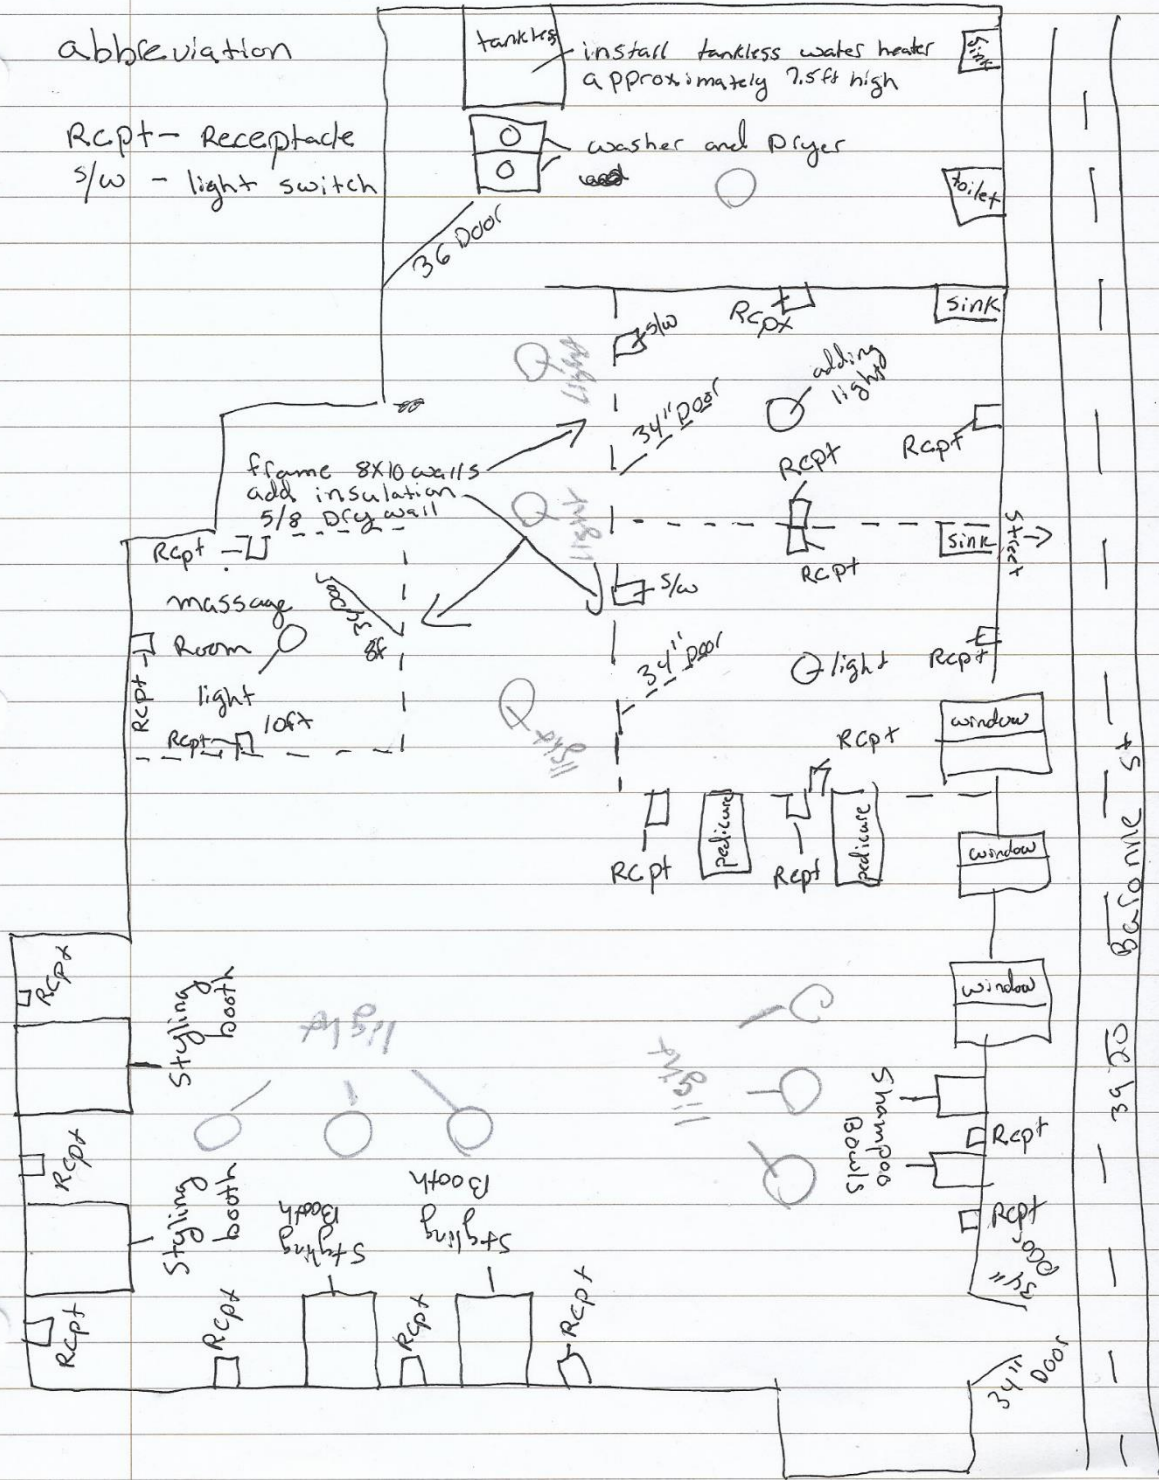 abbreviation
Rcpt - Receptacle
s/w - light switch
tankless
install tankless water heater
approximately 7.5ft high
Sink
washer and Dryer
toilet
36 Door
Rcpt
sink
s/w
light
adding
light
34" Door
Rcpt
Rcpt
frame 8x10 walls
add insulation
5/8 Dry wall
light
Rcpt
sink
Street
Rcpt
Rcpt
massage
Room
light
10ft
8f
Rcpt
Rcpt
s/w
34" Door
light
Rcpt
light
window
Rcpt
Rcpt
pedicure
Rcpt
pedicure
window
window
Baronne St
3920
Rcpt
Styling
booth
light
light
Shampoo
Bowls
Rcpt
Rcpt
Rcpt
Styling
booth
Styling
Booth
Styling
Booth
34"
Door
Rcpt
Rcpt
Rcpt
Rcpt
34"
Door